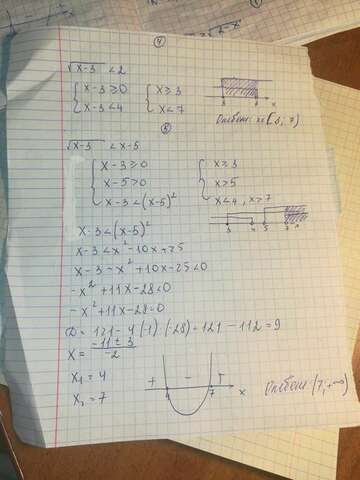 √x-3 < 2
{ x-3≥0 { x≥3
x-3<4 x<7
3 7 x
Ответ: x∈[3; 7)
√x-3 < x-5
{ x-3≥0 { x≥3
x-5>0 x≥5
x-3<(x-5)² x<4, x>7
3 4 5 7 x
x-3<(x-5)²
x-3<x²-10x+25
x-3-x²+10x-25<0
-x²+11x-28<0
-x²+11x-28=0
D = 121-4·(-1)·(-28)=121-112=9
x = -11±3 / -2
x₁=4
x₂=7
+ - +
4 7 x
Ответ: (7;+∞)